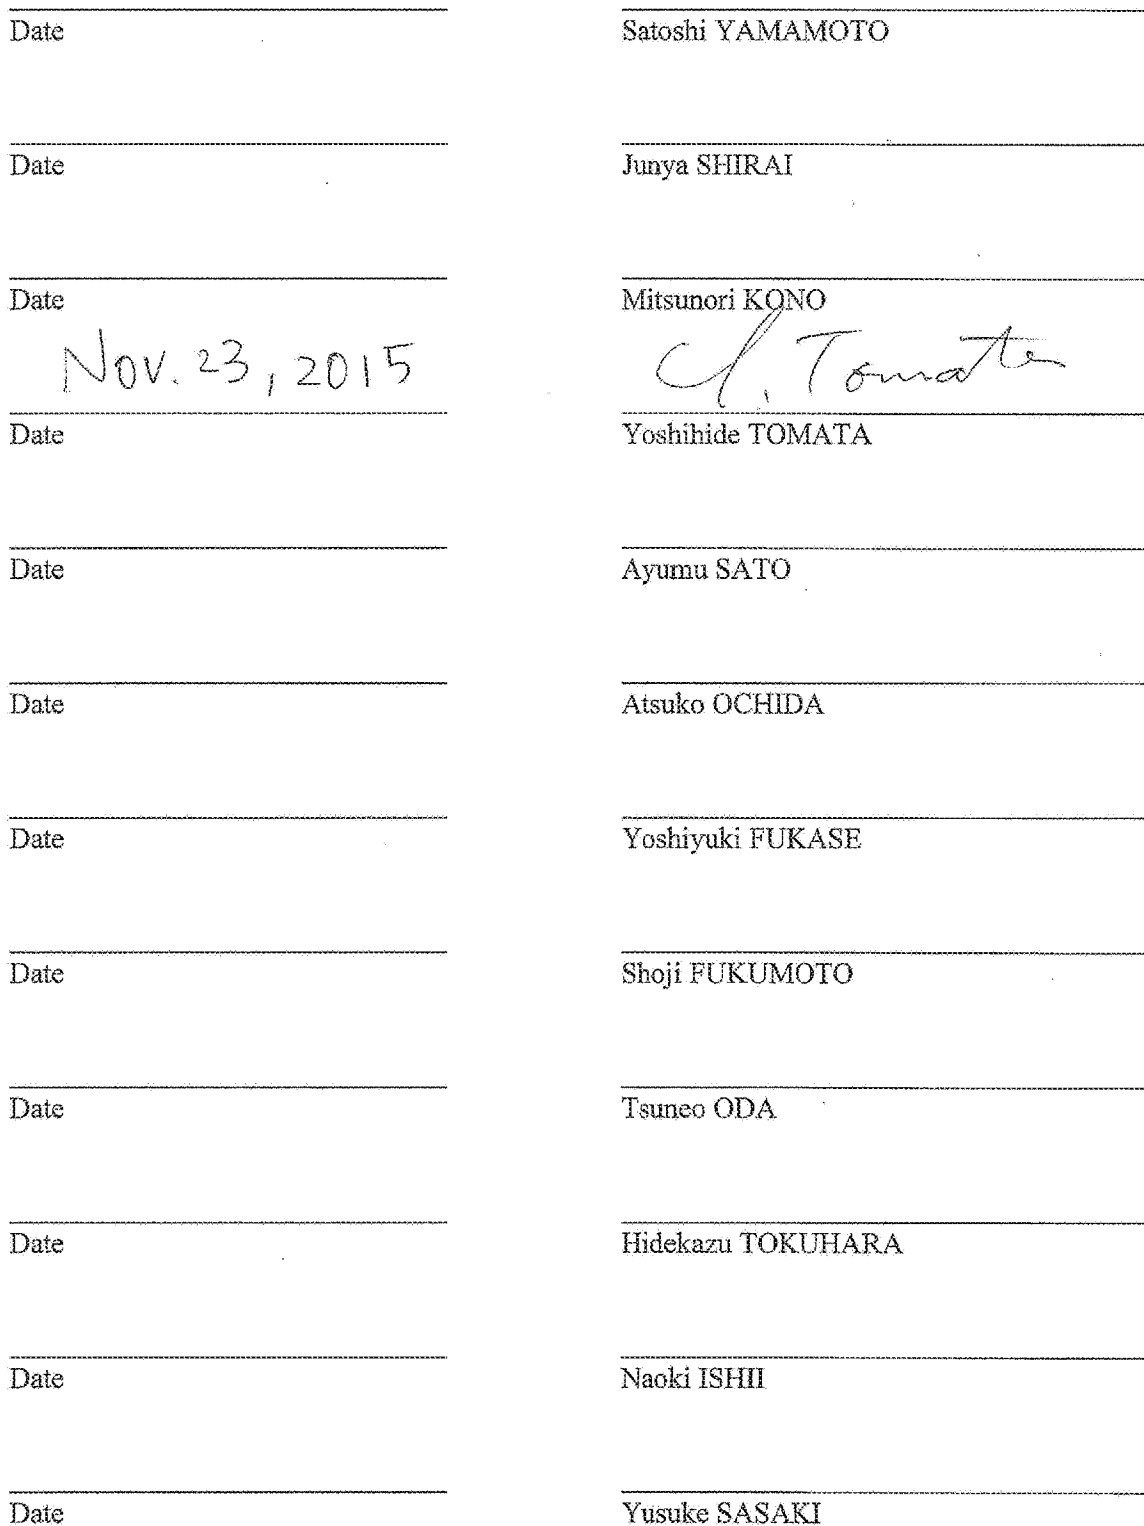 Date Satoshi YAMAMOTO
Date Junya SHIRAI
Date Mitsunori KONO
Nov. 23, 2015 Y. Tomata
Date Yoshihide TOMATA
Date Ayumu SATO
Date Atsuko OCHIDA
Date Yoshiyuki FUKASE
Date Shoji FUKUMOTO
Date Tsuneo ODA
Date Hidekazu TOKUHARA
Date Naoki ISHII
Date Yusuke SASAKI